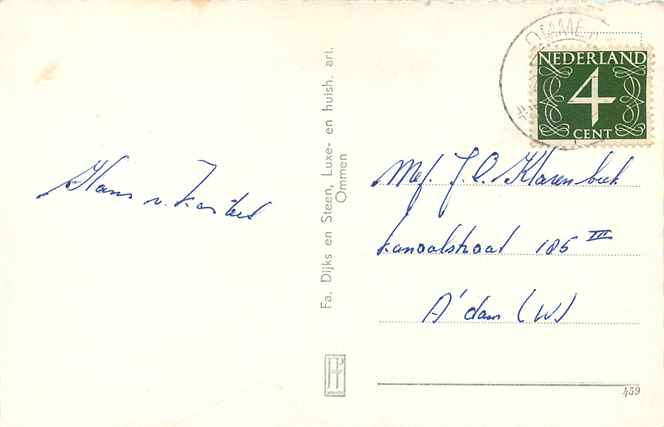 OMMEN
NEDERLAND
4
CENT
Hans v.
Fa. Dijks en Steen, Luxe- en huish. art.
Ommen
Mej. J. C. Klarenbeek
Kanaalstraat 185 III
A'dam (W)
459